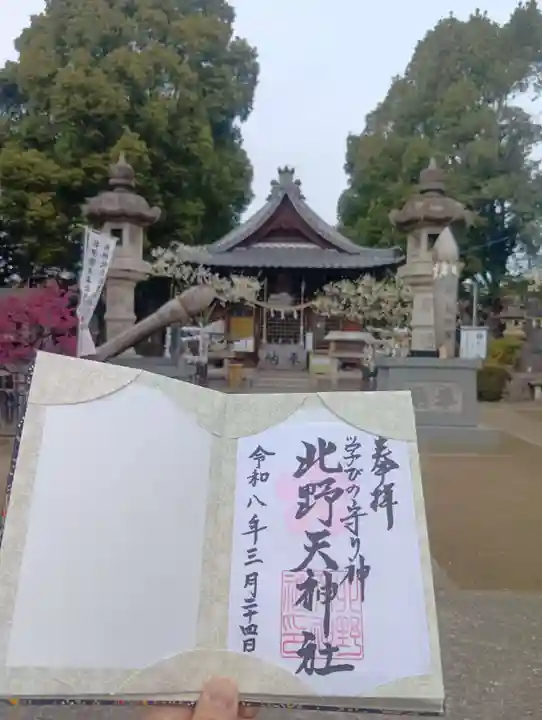 奉拝
学びの守り神
北野天神社
令和八年三月二十四日
奉納